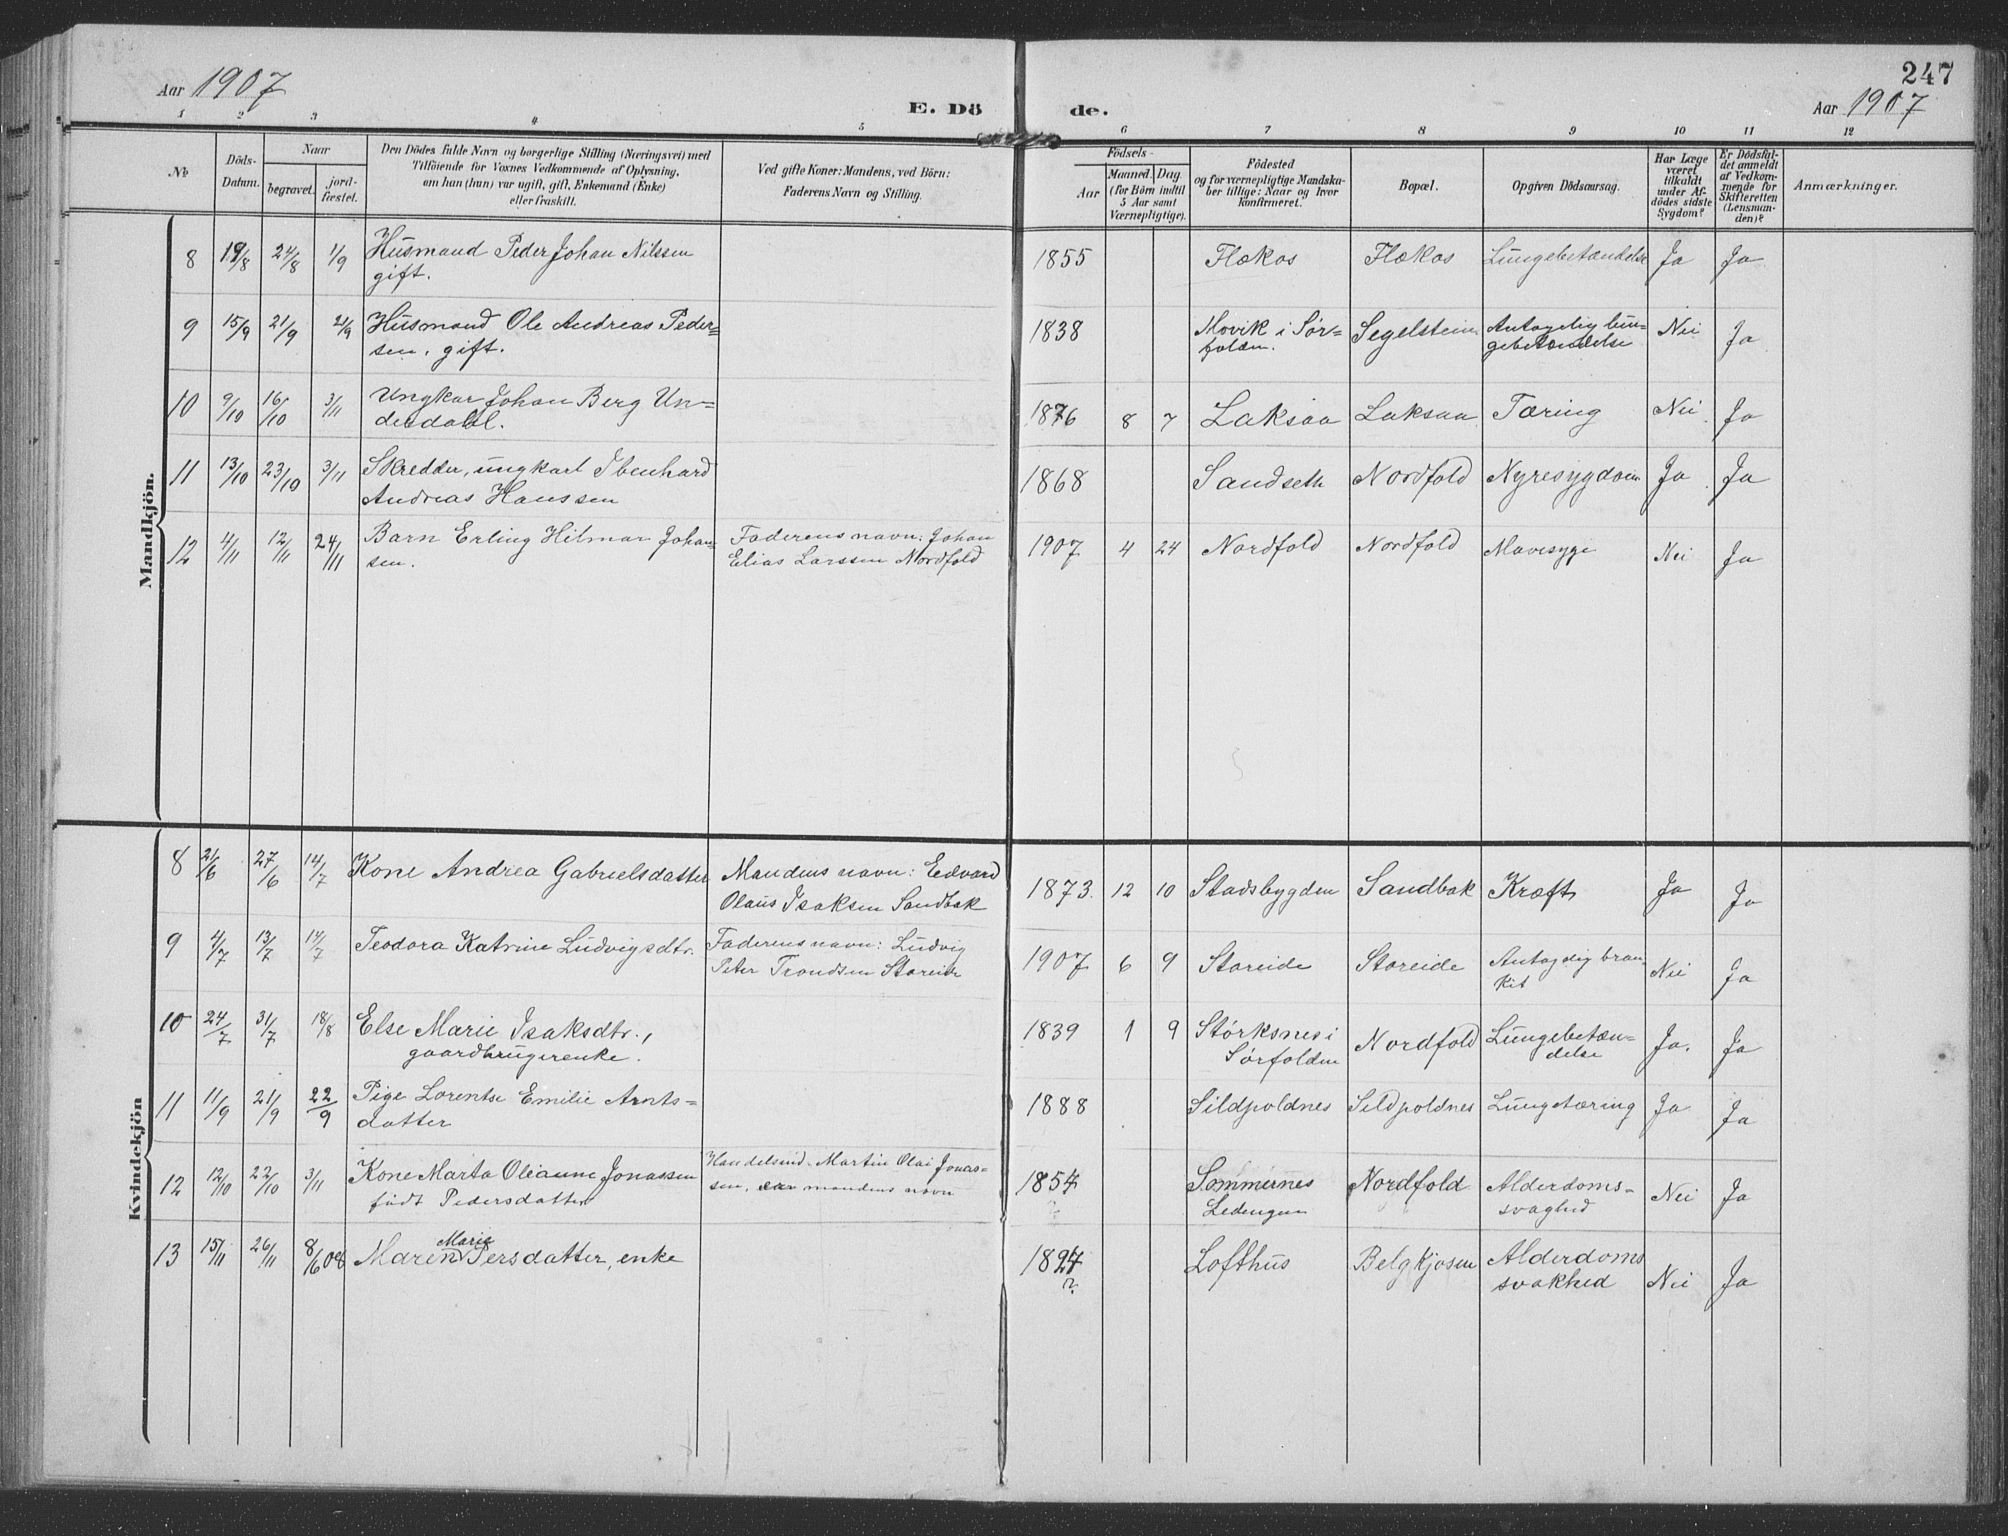 Aar 1907
E. Dö
de.
247
Aar 1907
1 2 3 4 5 6 7 8 9 10 11 12
No
Döds-
Datum.
Naar
begravet.
jord-
fæstet.
Den Dödes fulde Navn og borgerlige Stilling (Næringsvei) med
Tilföiende for Voxnes Vedkommende af Oplysning,
om han (hun) var ugift, gift, Enkemand (Enke)
eller fraskilt.
Ved gifte Koner: Mandens, ved Börn:
Faderens Navn og Stilling.
Födsels-
Aar
Maaned. Dag.
(for Börn indtil
5 Aar samt
Værnepligtige).
Födested
og for værnepligtige Mandska-
ber tillige: Naar og hvor
konfirmeret.
Bopæl.
Opgiven Dödsaarsag.
Har Læge
været
tilkaldt
under Af-
dödes sidste
Sygdom?
Er Dödsfal-
det anmeldt
af Vedkom-
mende for
Skifteretten
(Lensman-
den)?
Anmærkninger.
Mandkjön.
8 19/8 24/8 1/9 Husmand Peder Johan Nilssen
gift.
1855 Flækos Flækos Lungebetændelse Ja Ja
9 15/9 21/9 21/9 Husmand Ole Andreas Peder=
sen, gift.
1838 Movik i Sør=
folden. Segelstein Antagelig lun-
gebetændelse Nei Ja
10 9/10 16/10 3/11 Ungkar Johan Berg Un=
desdahl.
1876 8 7 Laksaa Laksaa Tæring Nei Ja
11 13/10 23/10 3/11 Skredder, ungkarl Ibenhard
Andreas Hanssen
1868 Sandseth Nordfold Nyresygdom Ja Ja
12 4/11 12/11 24/11 Barn Erling Hilmar Johan=
sen.
Faderens navn: Johan
Elias Larssen Nordfold
1907 4 24 Nordfold Nordfold Mavesyge Nei Ja
Kvindekjön
8 21/6 27/6 14/7 Kone Andrea Gabrielsdatter
Mandens navn: Edvard
Olaus Isaksen Sandbak
1873. 12 10 Stadsbygden Sandbak Kræft Ja Ja
9 4/7 13/7 14/7 Teodora Katrine Ludvigsdtr.
Faderens navn: Ludvig
Peter Trondsen Storeide
1907 6 9 Storeide Storeide Antagelig bron-
kit Nei Ja
10 24/7 31/7 18/8 Else Marie Isaksdtr.,
gaardbrugerenke.
1839 1 9 Størksnes i
Sørfolden Nordfold Lungebetæn=
delse Ja. Ja
11 11/9 21/9 22/9 Pige Lorentse Emilie Arnts-
datter
1888 Sildpoldnes Sildpoldnes Lungetæring Ja Ja
12 12/10 22/10 3/11 Kone Marta Oleanne Jonassen
født Pedersdatter
Handelsmd. Martin Olai Jonas=
sen, mandens navn
1854 Sommernes
Ledingen Nordfold Alderdoms=
svaghed Nei Ja
13 15/11 26/11 8/6 08 Maren Marie Persdatter, enke
1827
? Lofthus Belgkjosen Alderdoms
svakhed Nei Ja